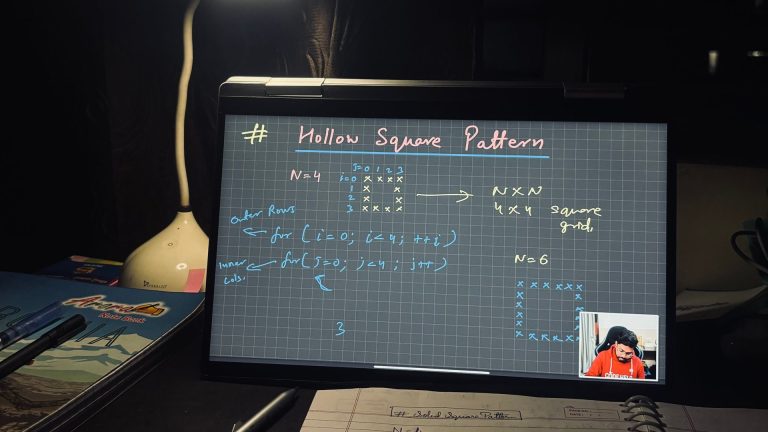 # Hollow Square Pattern
N=4
j=0 1 2 3
i=0 x x x x
1 x x
2 x x
3 x x x x
N x N
4 x 4 square
grid,
Outer Rows
for ( i=0; i<4; ++i )
Inner
Cols.
for ( j=0; j<4 ; j++ )
3
N=6
x x x x x x
x x
x x
x x
x
x x x x x x
CODE HELP
Anand
Note Book
# Solid Square Pattern